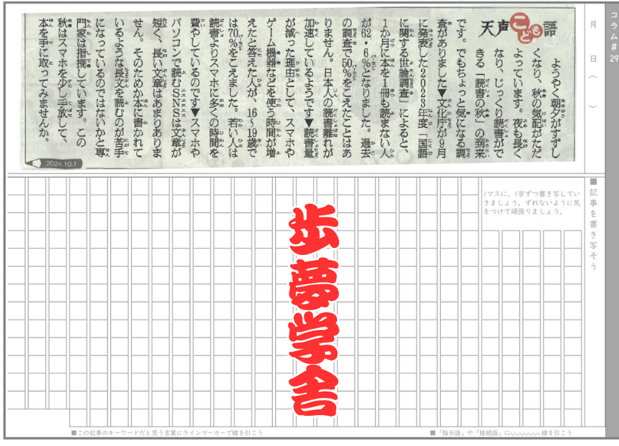 コラム#29
月 日( )
天声こども語
ようやく朝夕がすずし
くなり、秋の気配がただ
よっています。夜も長く
なり、じっくり読書がで
きる「読書の秋」の到来
です。でもちょっと気になる調
査がありました▼文化庁が9月
に発表した2023年度「国語
に関する世論調査」によると、
1か月に本を1冊も読まない人
が62・6%となりました。過去
の調査で50%をこえたことはあ
りません。日本人の読書離れが
加速しているようです▼読書量
が減った理由として、スマホや
ゲーム機器などを使う時間が増
えたと答えた人が、16~19歳で
は70%をこえました。若い人は
読書よりスマホに多くの時間を
費やしているのです▼スマホや
パソコンで読むSNSは文章が
短く、長い文章はあまりありま
せん。そのためか本に書かれて
いるような長文を読むのが苦手
になっているのではないかと専
門家は指摘しています。この
秋はスマホを少し手放して、
本を手に取ってみませんか。
2024.10.1
■記事を書き写そう
1マスに、1字ずつ書き写してい
きましょう。ずれないように気
をつけて頑張りましょう。
歩夢学舎
■「指示語」や「接続語」に 線を引こう
■この記事のキーワードだと思う言葉にラインマーカーで線を引こう